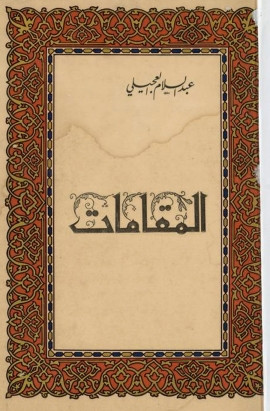 عبد السلام العجيلي
المقامات